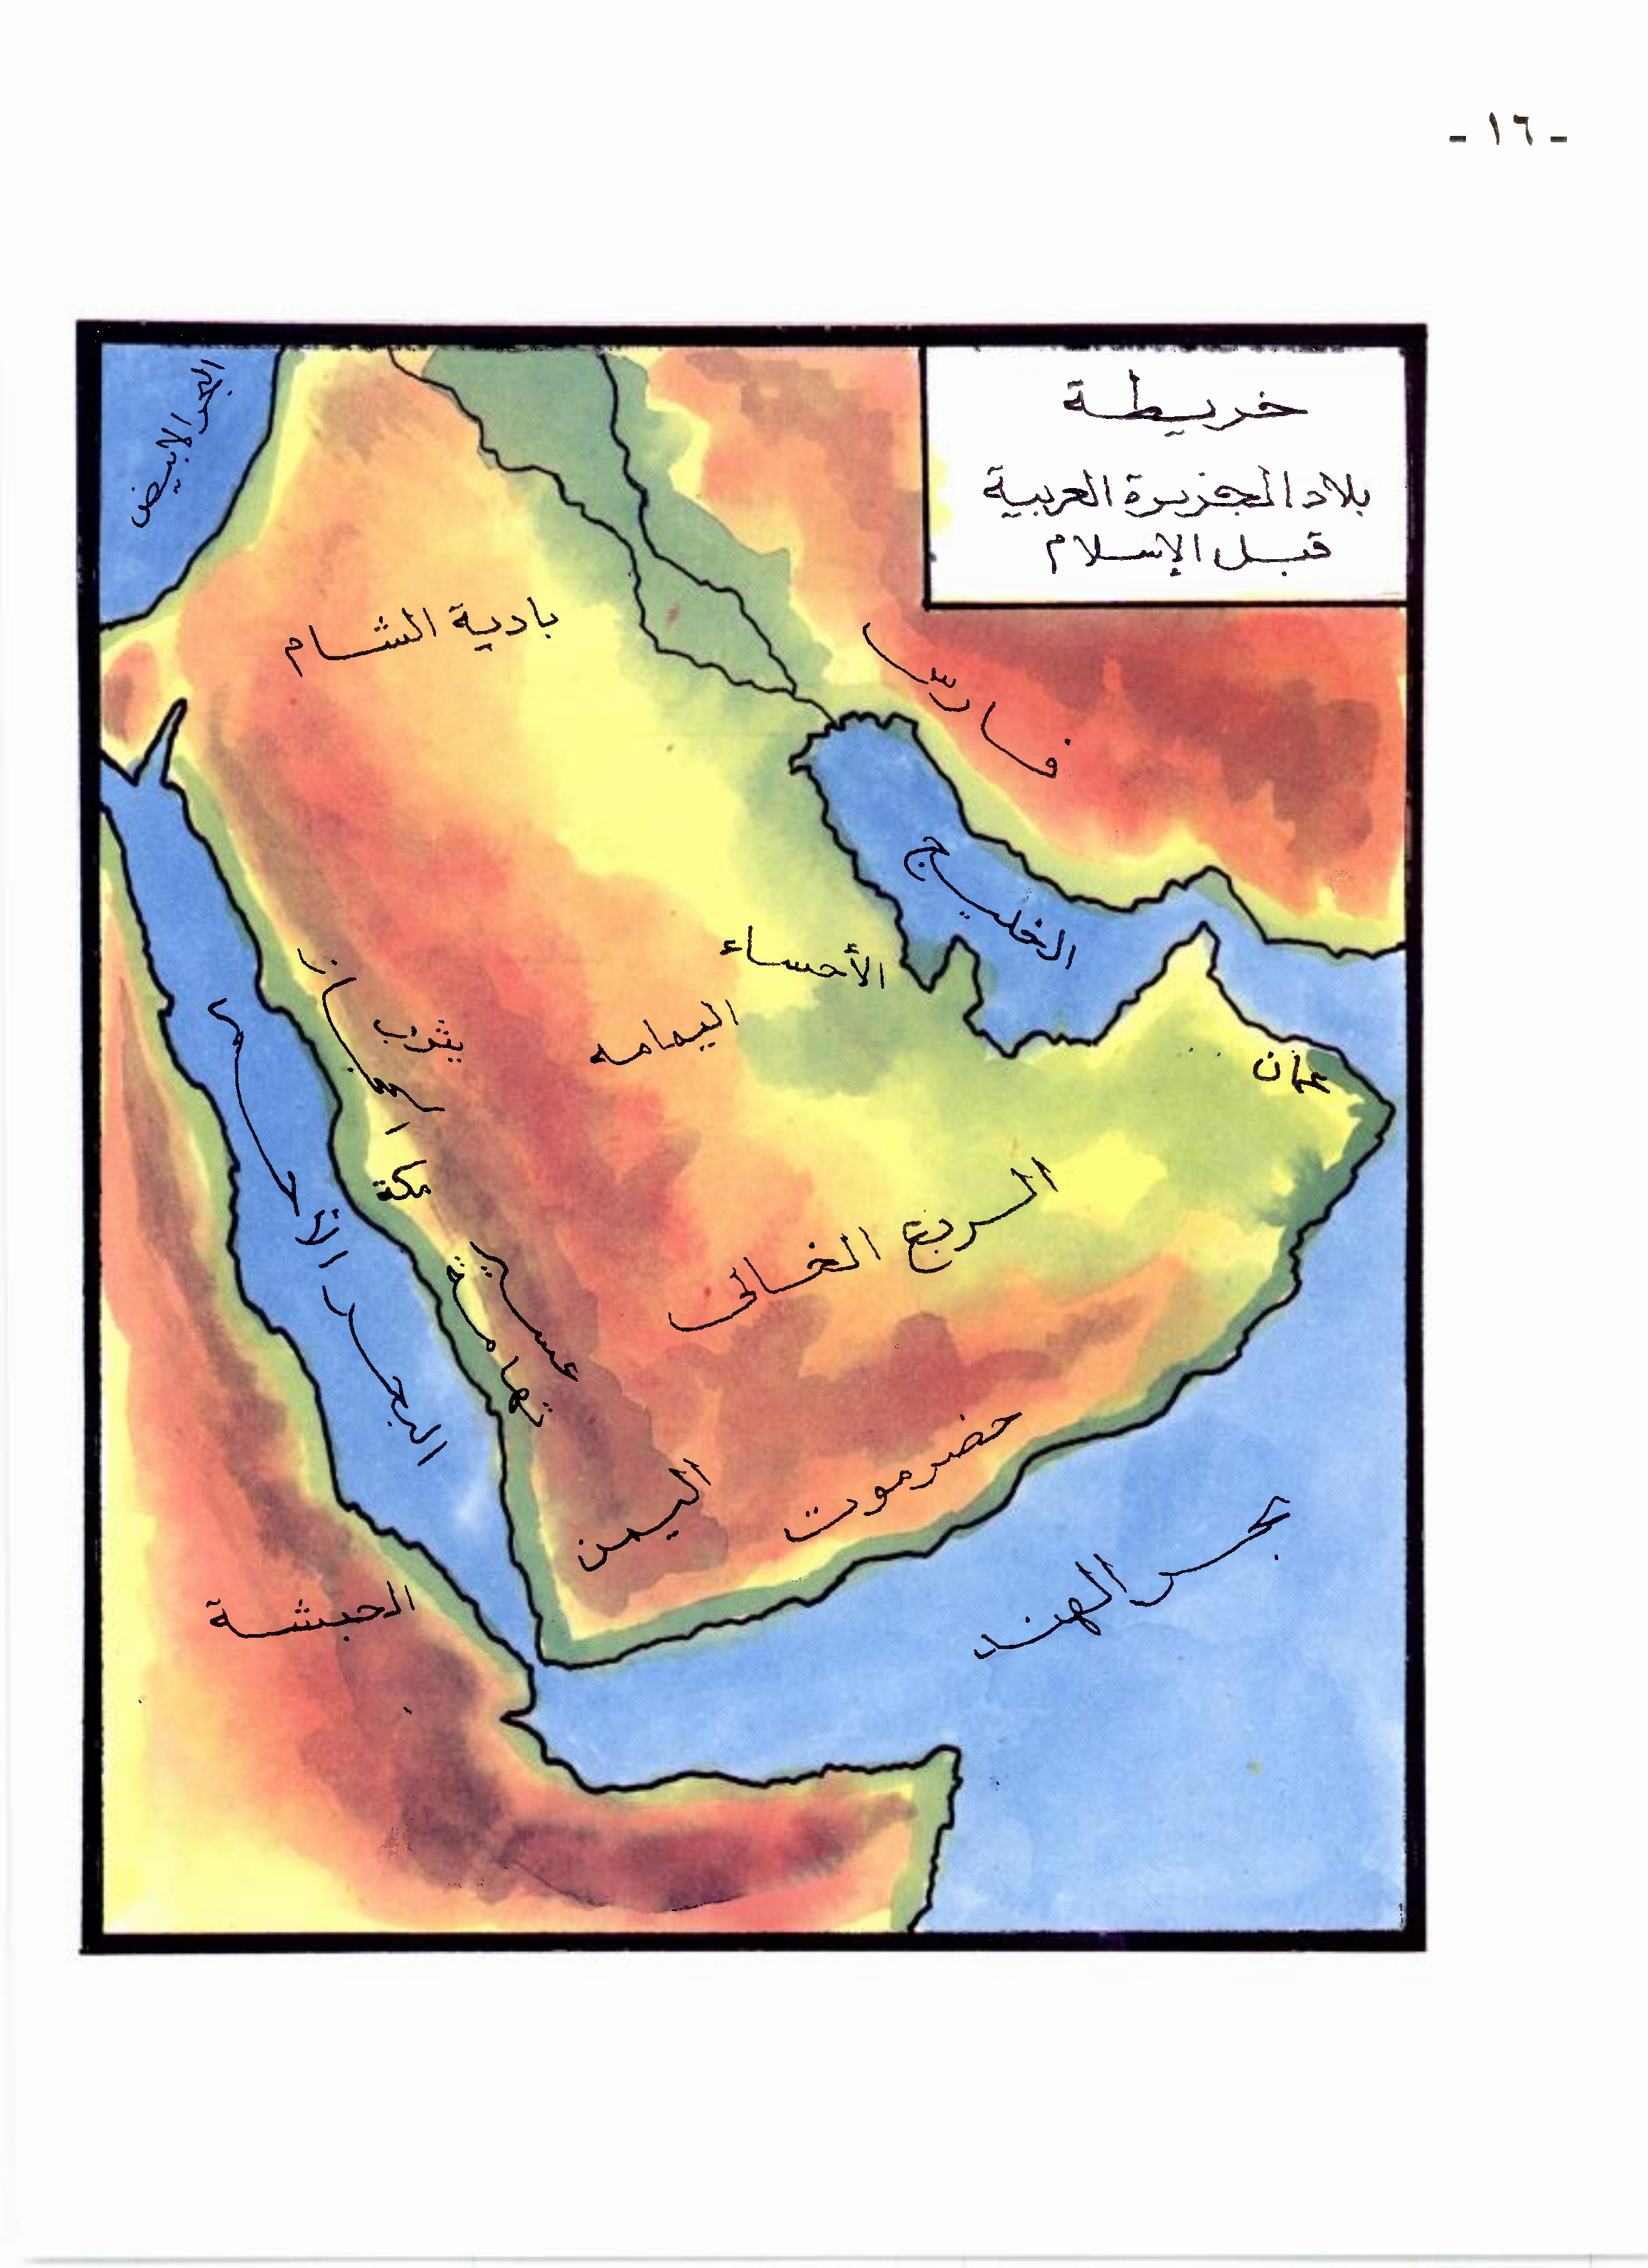 - ١٦ -
خريطة
بلاد الجزيرة العربية
قبل الإسلام
البحر الابيض
بادية الشام
فارس
الخليج
الأحساء
اليمامه
يثرب
عمان
مكة
الربع الخالى
البحر الأحمر
عسير
تهامة
حضرموت
اليمن
بحر الهند
الحبشة